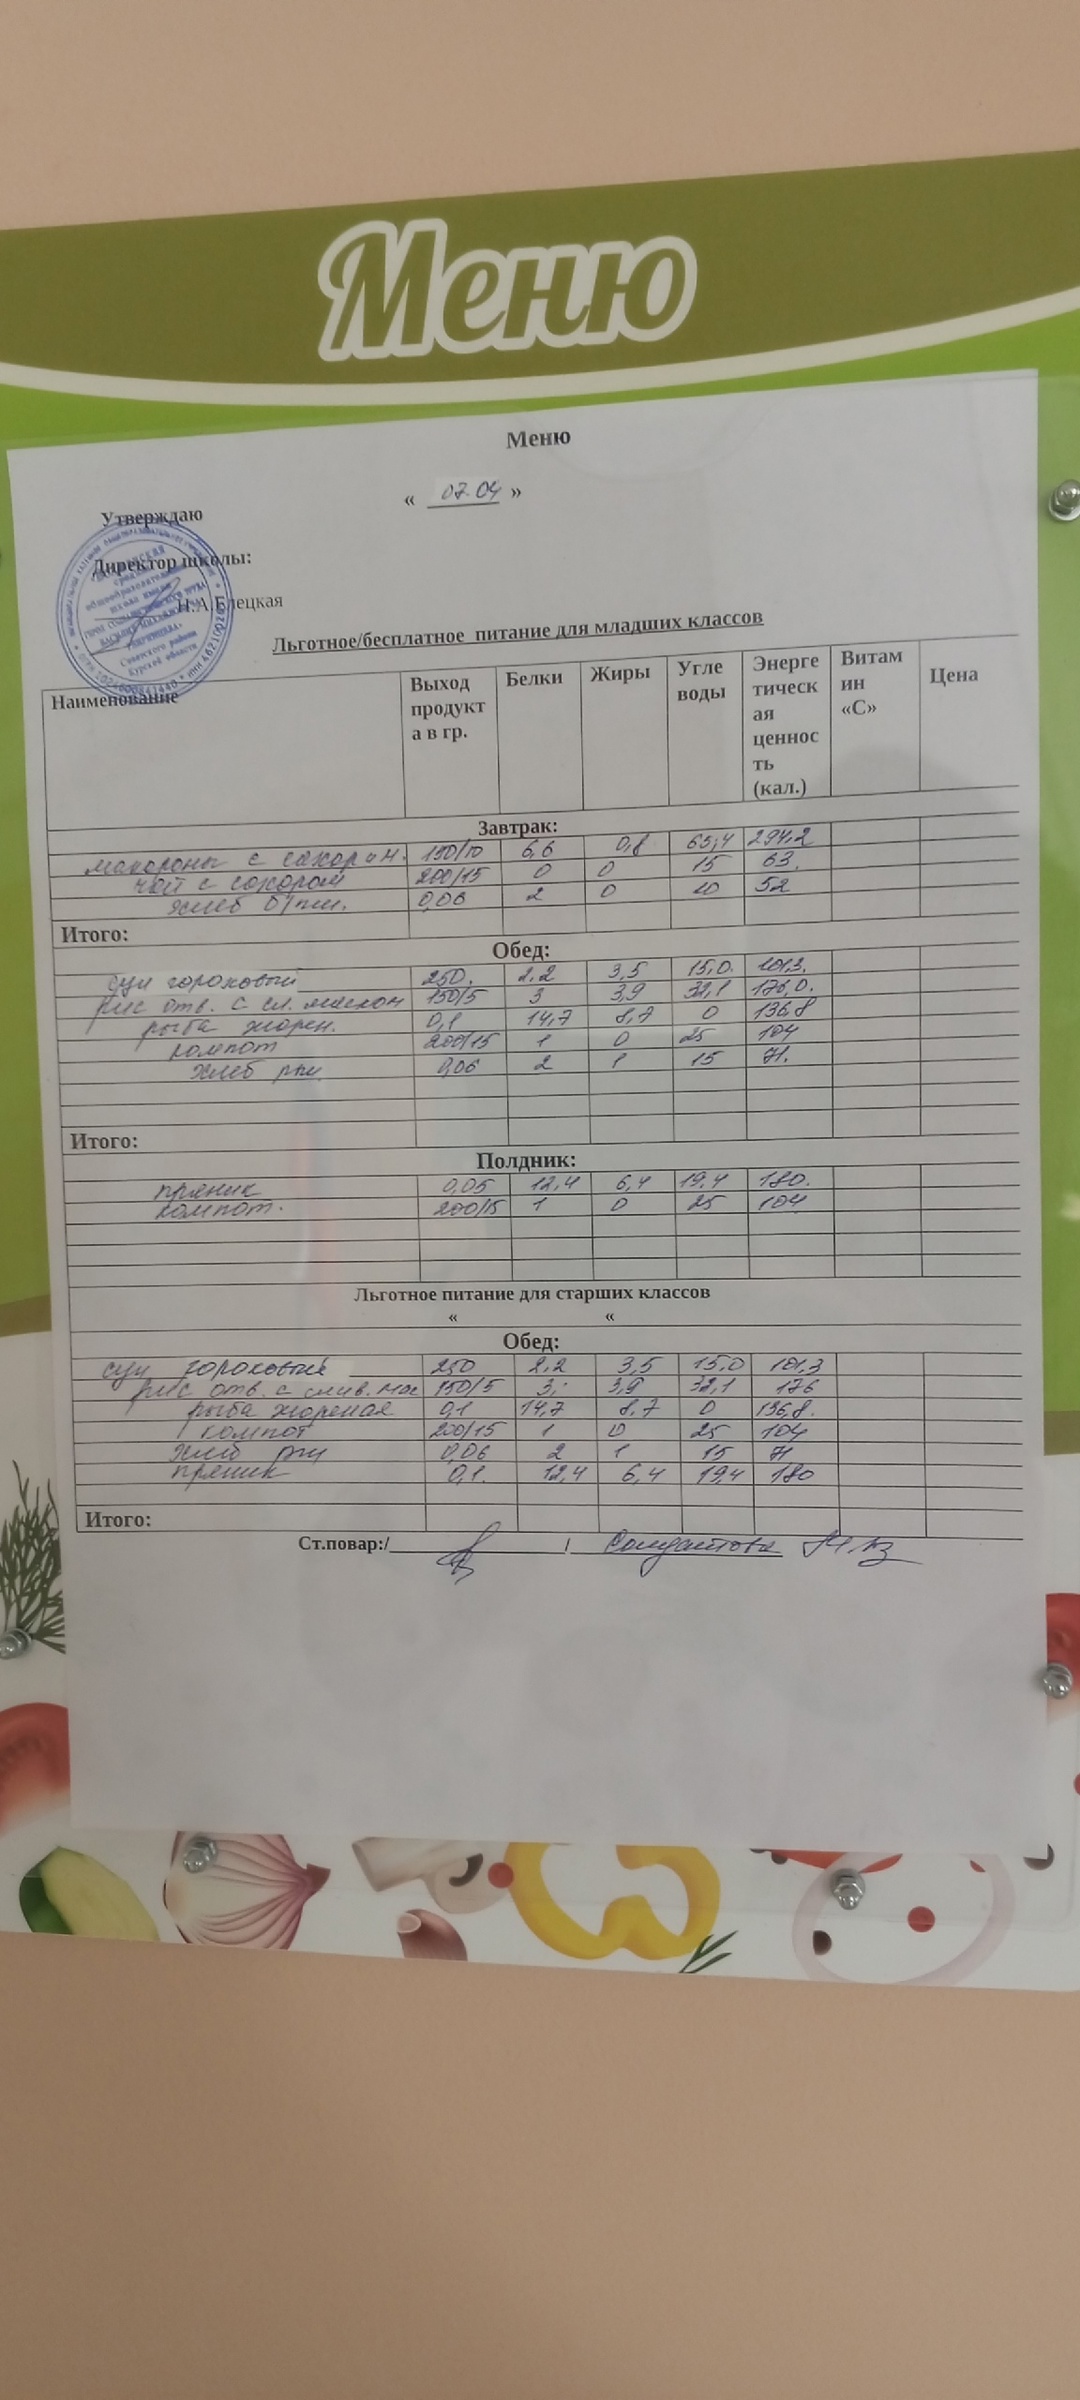 Меню
Меню
« 07.04 »
Утверждаю
Директор школы:
Н.А.Елецкая
Льготное/бесплатное питание для младших классов
Наименование Выход продукта в гр. Белки Жиры Углеводы Энергетическая ценность (кал.) Витамин «С» Цена
Завтрак:
макароны с сахаром. 150/10 6,6 0,8 65,4 294,2
чай с сахаром 200/15 0 0 15 63.
хлеб 0,06 2 0 10 52
Итого:
Обед:
суп гороховый 250. 2,2 3,5 15,0. 101,3.
рис отв. с сл. маслом 150/5 3 3,9 32,1 176,0.
рыба жарен. 0,1 14,7 8,7 0 136,8
компот 200/15 1 0 25 104
хлеб рж 0,06 2 1 15 71.
Итого:
Полдник:
пряник 0,05 12,4 6,4 19,4 180.
компот. 200/15 1 0 25 104
Льготное питание для старших классов
« «
Обед:
суп гороховый 250 2,2 3,5 15,0 101,3
рис отв. с слив. мас 150/5 3,. 3,9 32,1 176
рыба жареная 0,1 14,7 8,7 0 136,8.
компот 200/15 1 0 25 104
хлеб рж 0,06 2 1 15 71
пряник 0,1. 12,4 6,4 19,4 180
Итого:
Ст.повар:/ /